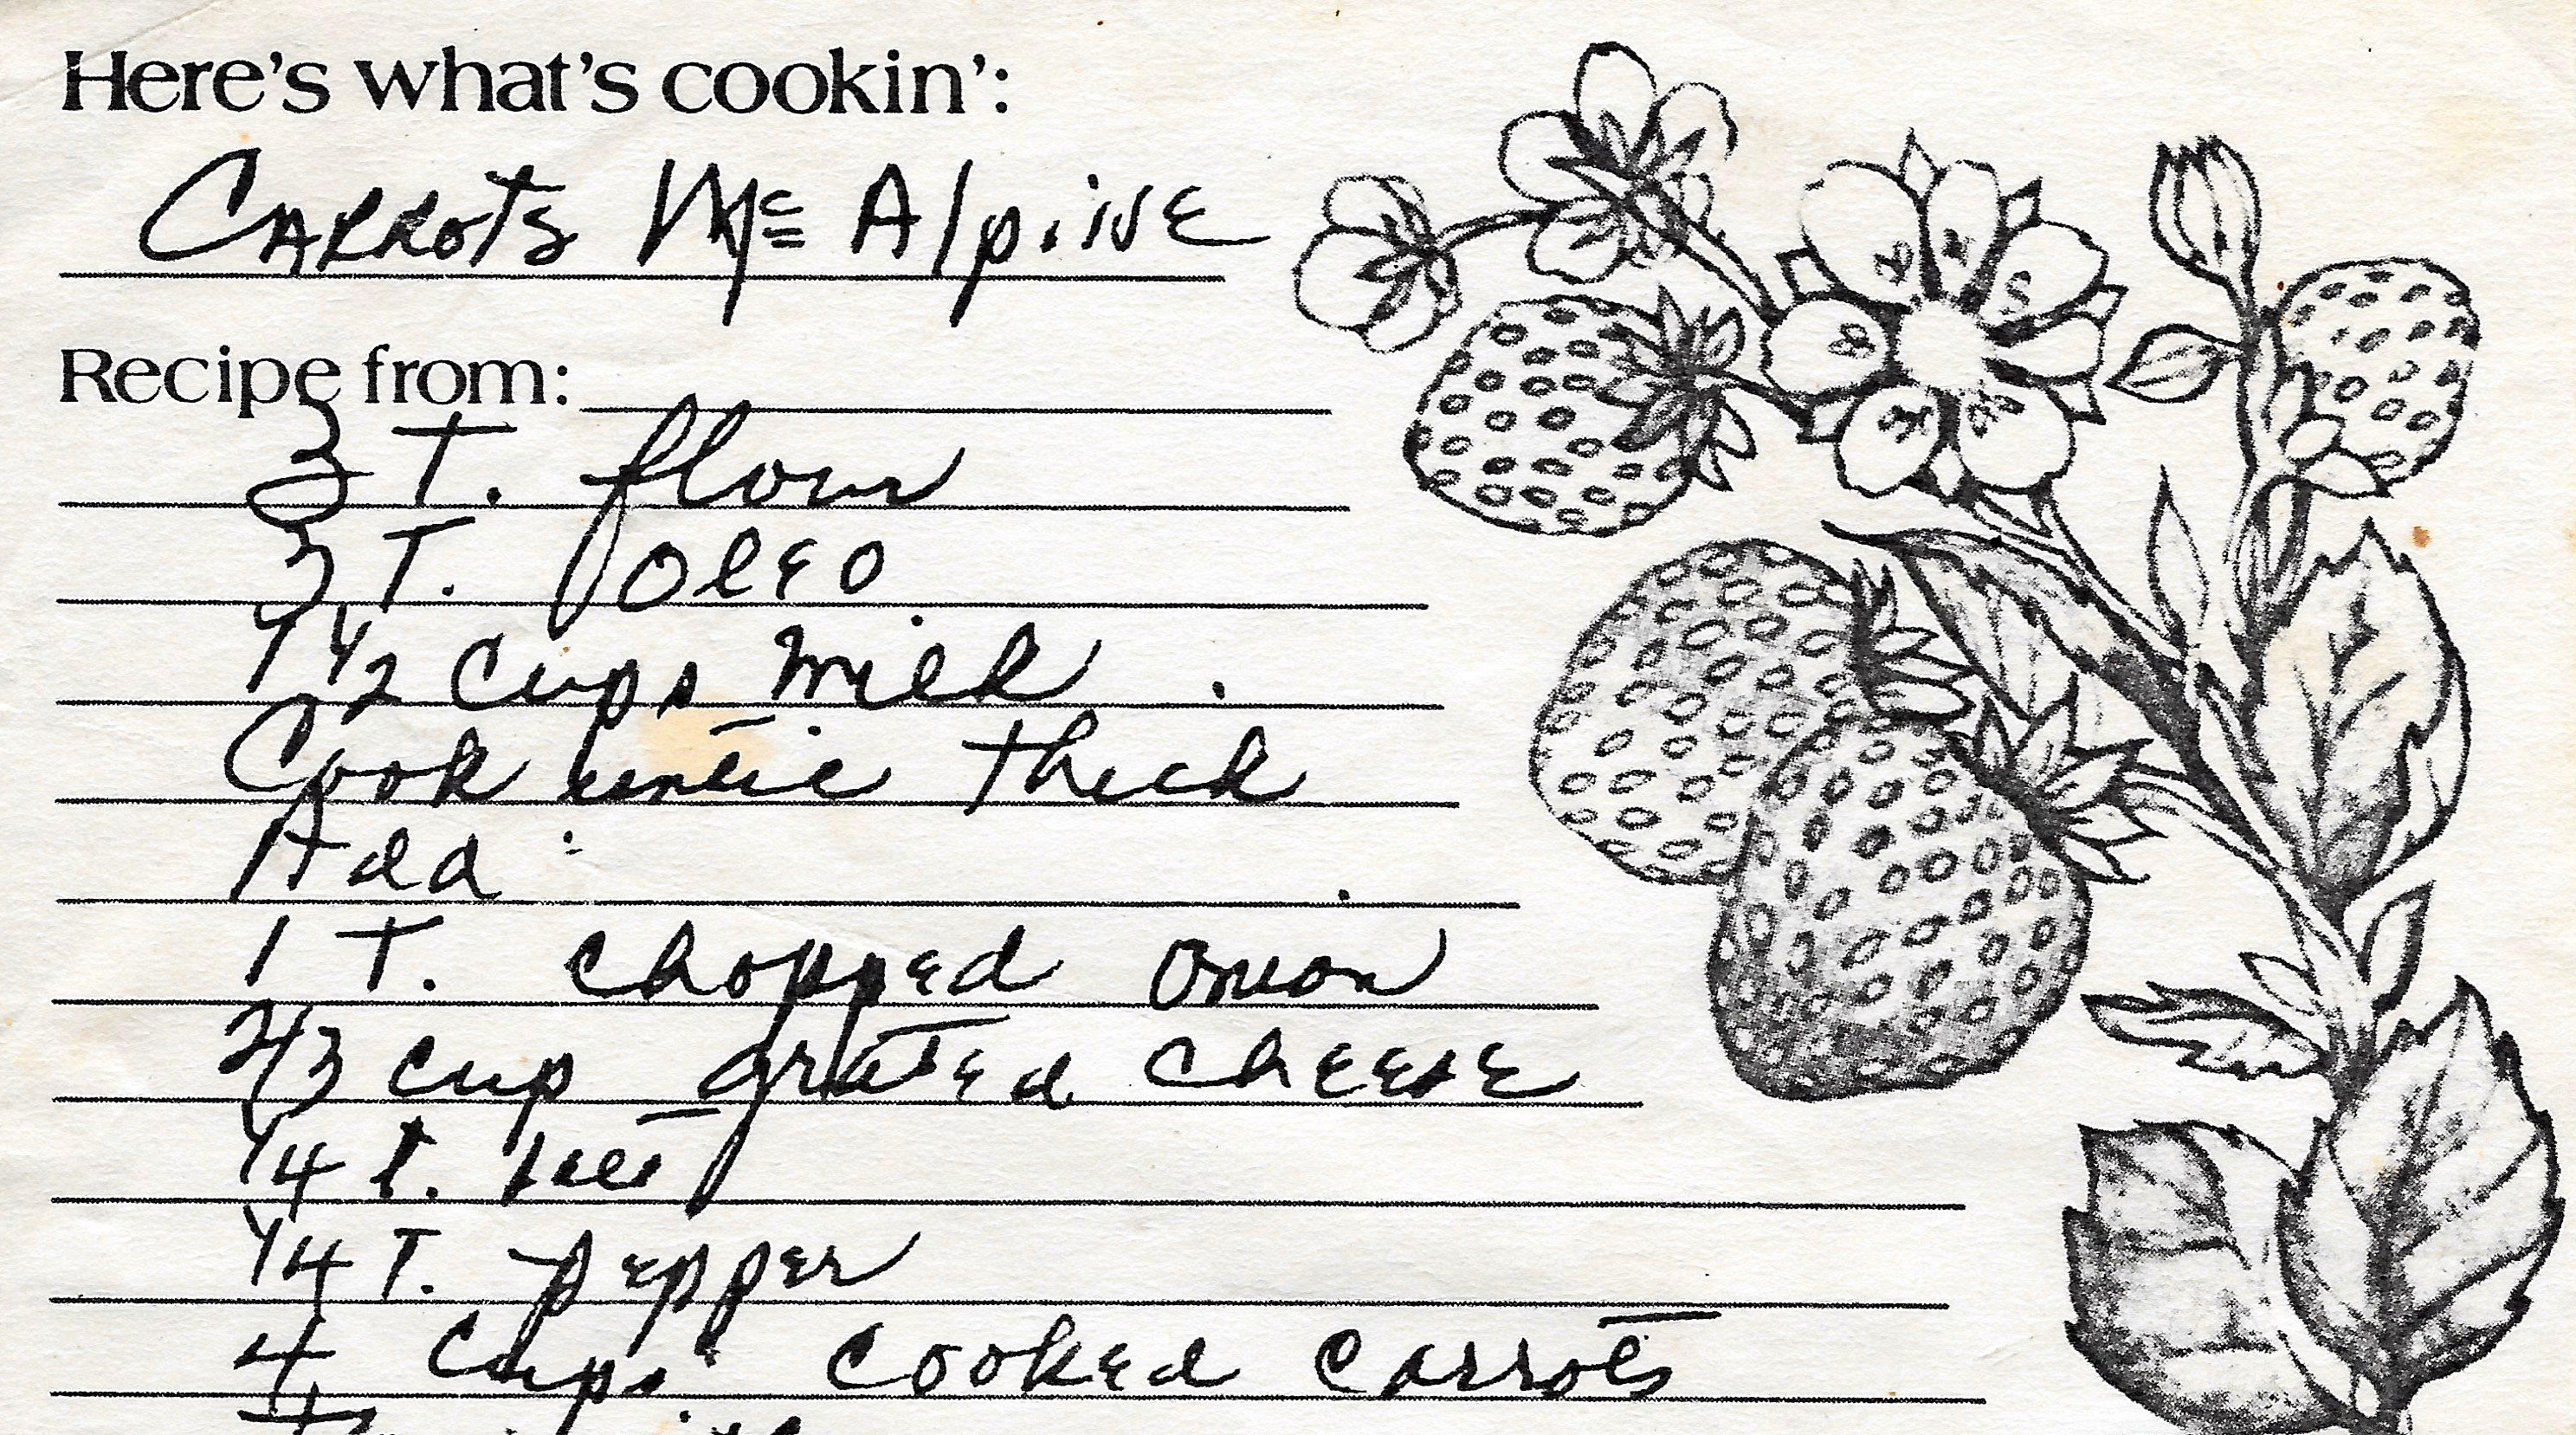 Here's what's cookin':
CARROTS Mc Alpine
Recipe from:
3 T. flour
3 T. oleo
1 1/2 cups milk
Cook until thick
Add :
1 T. chopped onion
2/3 cup grated cheese
1/4 t. salt
1/4 T. pepper
4 cups cooked carrots